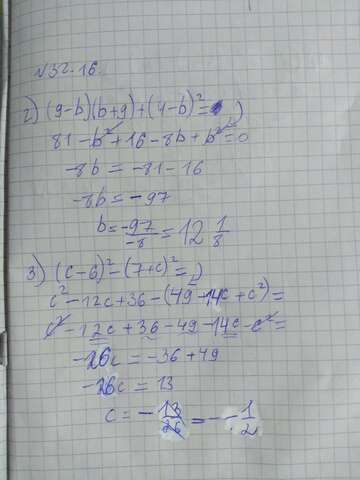 №32.16
2) (9-b)(b+9)+(4-b)²=0
81-b²+16-8b+b²=0
-8b=-81-16
-8b=-97
b=-97/-8=12 1/8
3) (c-6)²-(7+c)²=
c²-12c+36-(49+14c+c²)=
c²-12c+36-49-14c-c²=
-26c=-36+49
-26c=13
c=-13/26=-1/2